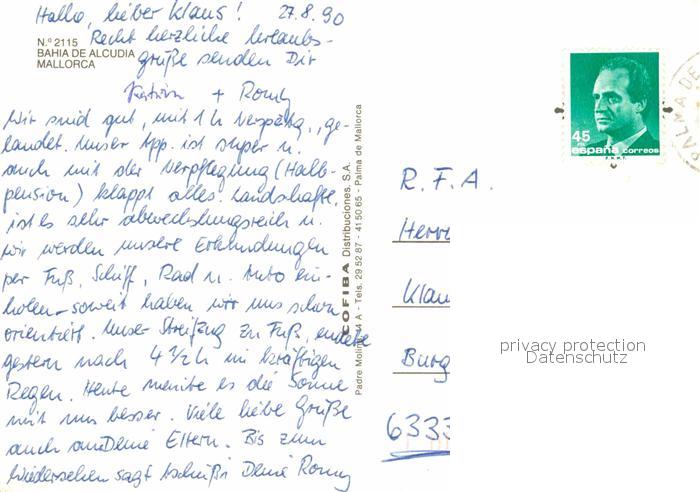 Hallo, lieber Klaus! 27.8.90
Recht herzliche Urlaubs-
grüße senden Dir
Katrin + Romy
Wir sind gut, mit 1 h Verspätg., ge-
landet. Unser App. ist super u.
auch mit der Verpflegung (Halb-
pension) klappt alles. Landschaftl.
ist es sehr abwechslungsreich u.
wir werden unsere Erkundungen
per Fuß, Schiff, Rad u. Auto ein-
holen - soweit haben wir uns schon
orientiert. Unser Streifzug zu Fuß, endete
gestern nach 4 1/2 h im kräftigen
Regen. Heute meinte es die Sonne
mit uns besser. Viele liebe Grüße
auch an Deine Eltern. Bis zum
Wiedersehen sagt tschüßi Deine Romy
N.º 2115
BAHIA DE ALCUDIA
MALLORCA
COFIBA Distribuciones, S.A.
Padre Molina, 44 A - Tels. 29 52 87 - 41 50 65 - Palma de Mallorca
45
PTA
españa correos
F.N.M.T.
PALMA DE
R.F.A.
Herrn
Klau
Burg
6333
privacy protection
Datenschutz